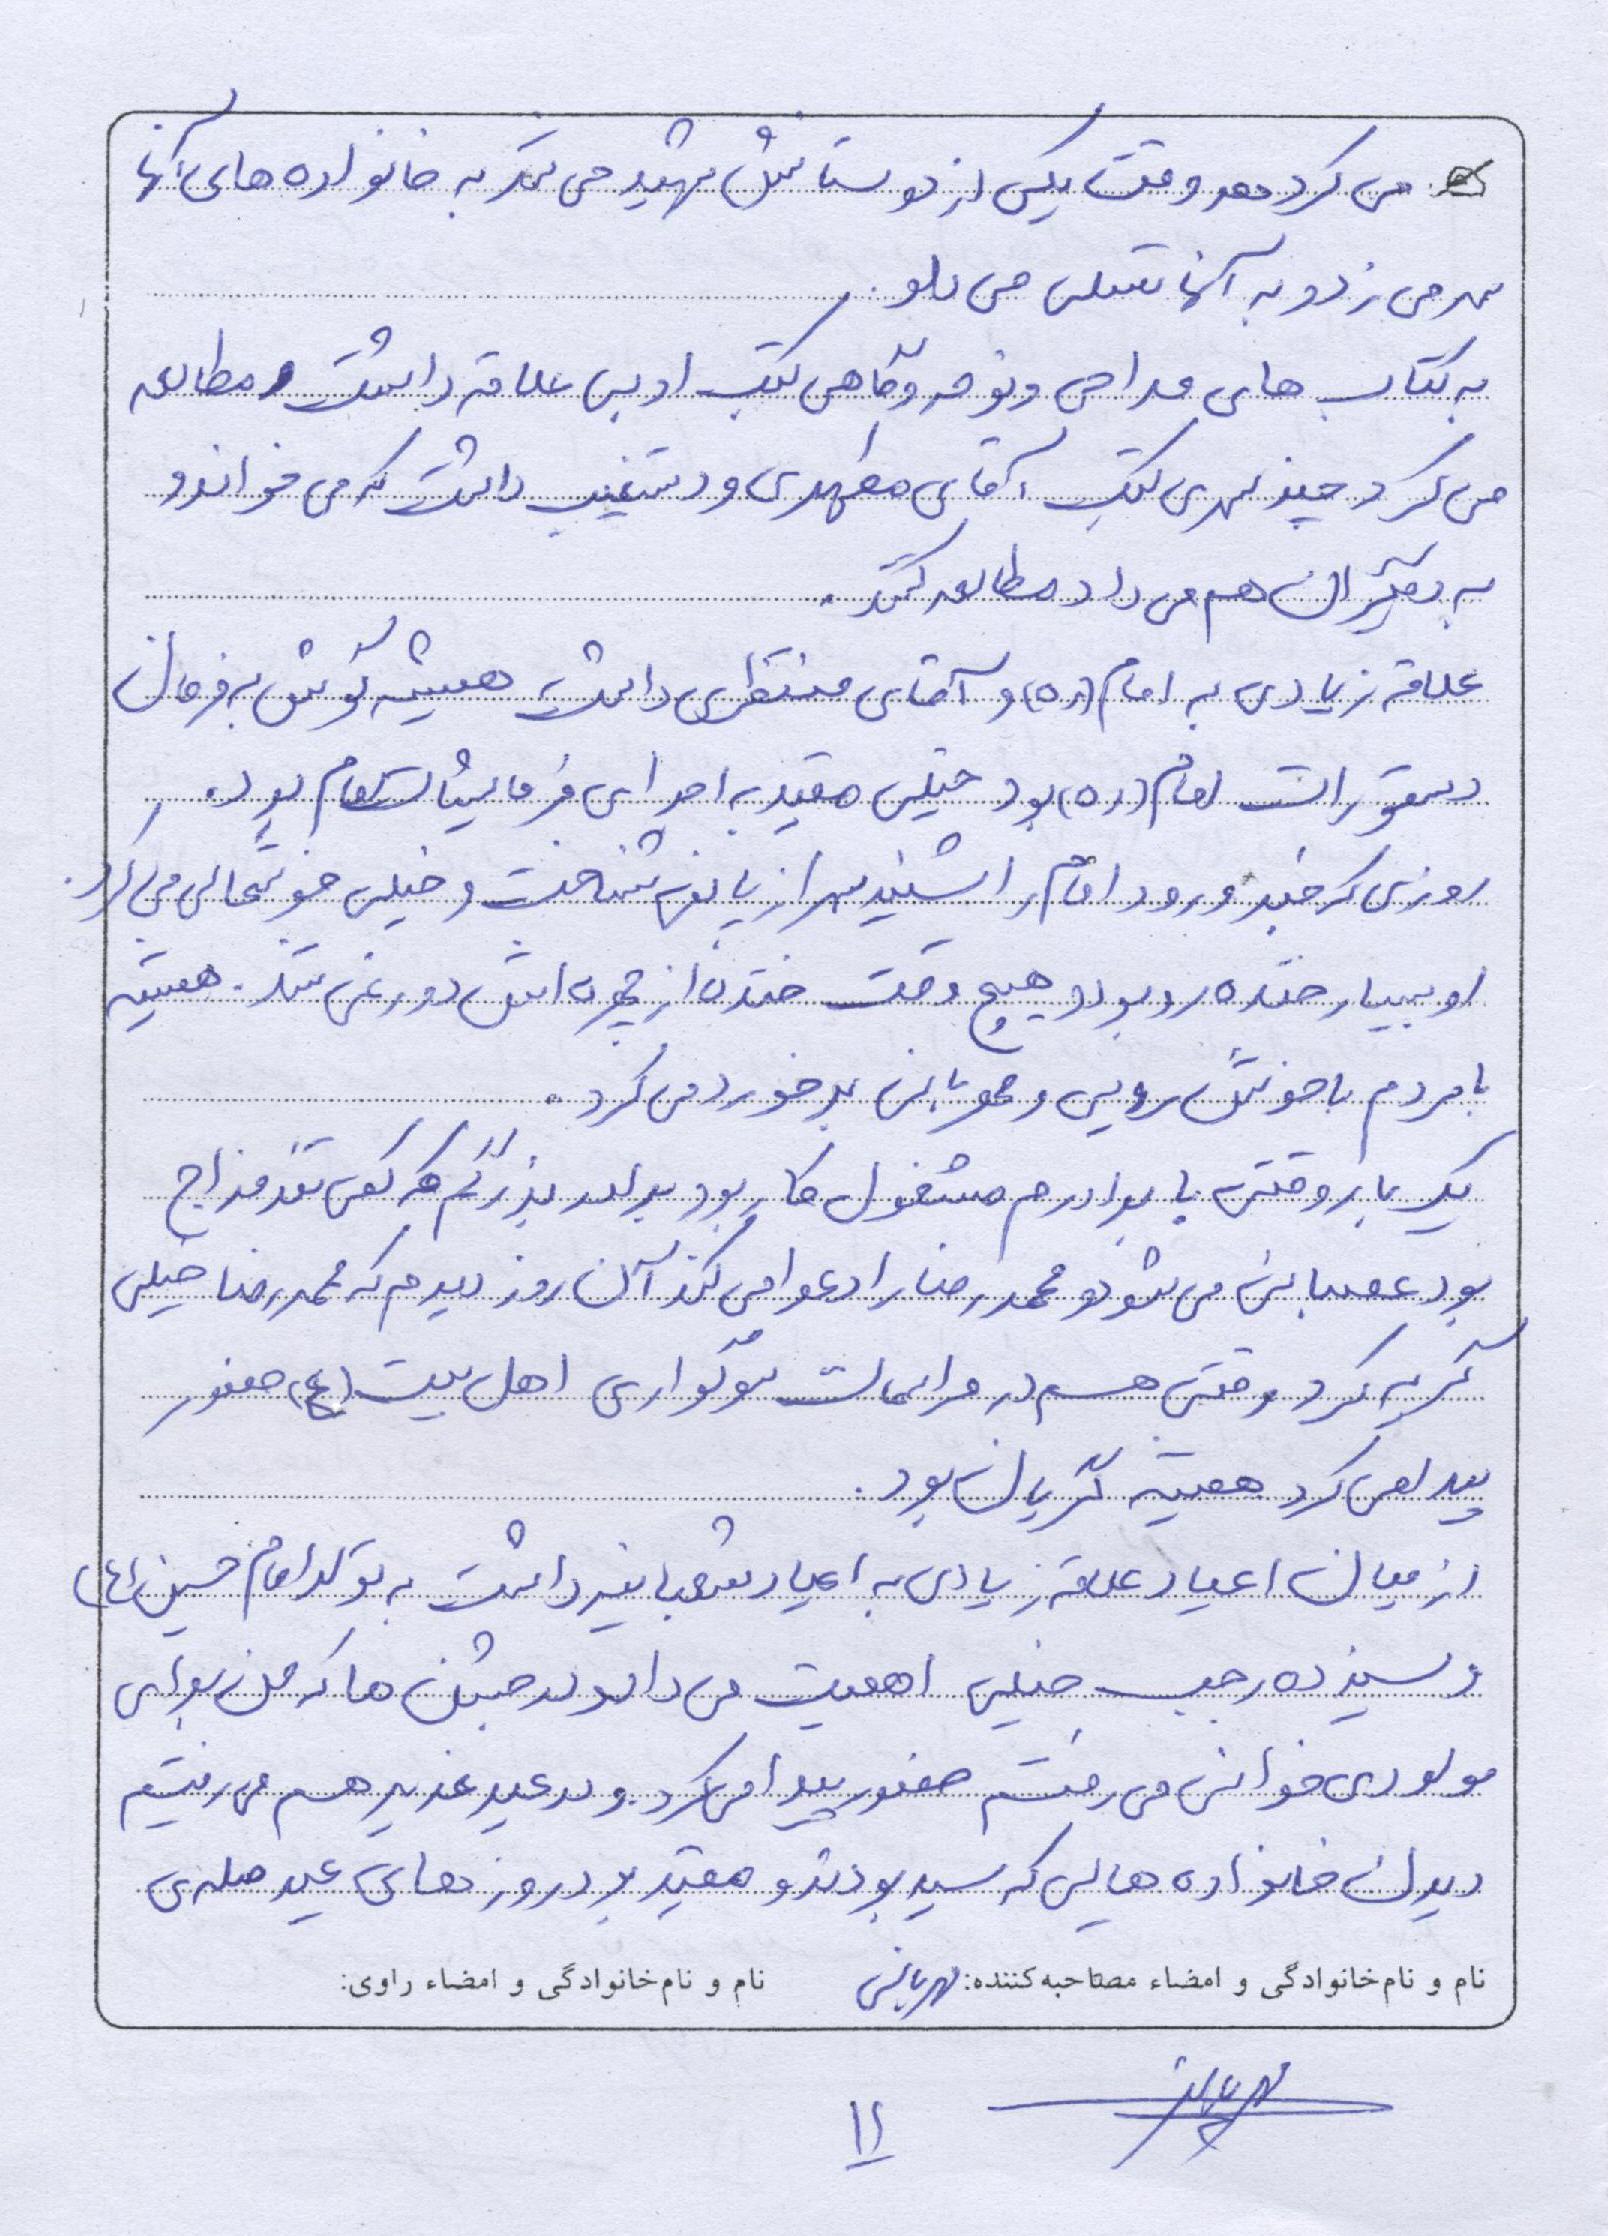 می کرد هر وقت یکی از دوستانش شهید می شد به خانواده های آنها
سر می زد و به آنها تسلی می داد.
به کتاب های مداحی و نوحه و گاهی کتب ادبی علاقه داشت و مطالعه
می کرد چند سری کتب آقای مطهری و دستغیب داشت که می خواند و
به دیگران هم می داد مطالعه کنند.
علاقه زیادی به امام (ره) و آقای منتظری داشت همیشه گوش به فرمان
دستورات امام (ره) بود خیلی مقید به اجرای فرمایشات امام بود.
روزی که خبر ورود امام را شنید سر از پا نمی شناخت و خیلی خوشحالی می کرد.
او بسیار خنده رو بود و هیچ وقت خنده از چهره اش دور نمی شد. همیشه
با مردم با خوش رویی و مهربانی برخورد می کرد.
یک بار وقتی با برادرم مشغول کار بود برادر بزرگم که کمی تند مزاج
بود عصبانی می شود و محمدرضا را دعوا می کند آن روز دیدم که محمدرضا خیلی
گریه کرد وقتی هم در مراسمات سوگواری اهل بیت (ع) حضور
پیدا می کرد همیشه گریان بود.
از میان اعیاد علاقه زیادی به اعیاد شعبانیه داشت به تولد امام حسین (ع)
و سیزده رجب خیلی اهمیت می داد و در جشن ها که من برای
مولودی خوانی می رفتم حضور پیدا می کرد. و در عید غدیر هم می رفتیم
دیدن خانواده هایی که سید بودند و مقید بود در روزهای عید صله ی
نام و نام‌خانوادگی و امضاء مصاحبه‌کننده: مهربانی نام و نام‌خانوادگی و امضاء راوی:
مهربانی
۱۱